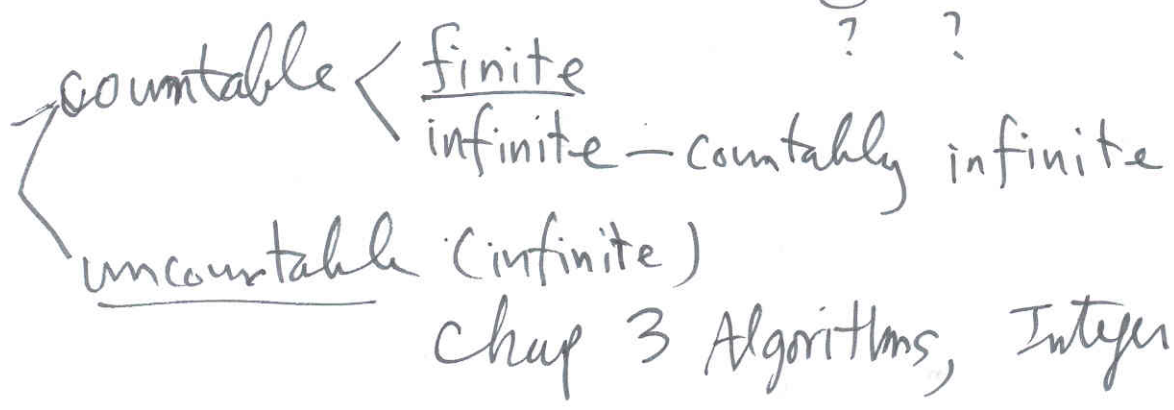 ? ?
countable < finite
infinite – countably infinite
uncountable (infinite)
Chap 3 Algorithms, Integer